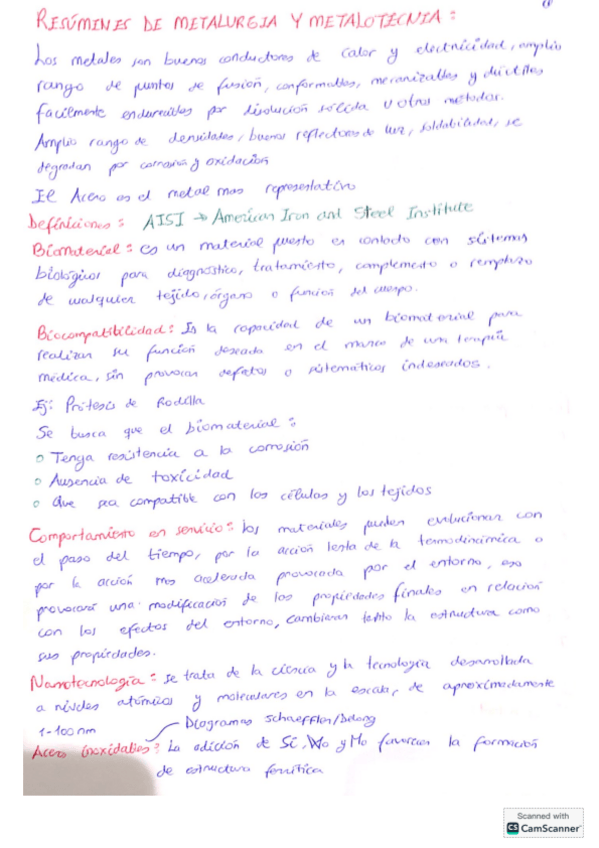 RESÚMENES DE METALURGIA Y METALOTECNIA:
Los metales son buenos conductores de calor y electricidad, amplio
rango de puntos de fusión, conformables, mecanizables y dúctiles
facilmente endurecidos por disolución sólida u otros métodos.
Amplio rango de densidades, buenos reflectores de luz, soldabilidad, se
degradan por corrosión y oxidación
El Acero es el metal mas representativo
Definiciones: AISI → American Iron and Steel Institute
Biomaterial: es un material puesto en contacto con sistemas
biológicos para diagnostico, tratamiento, complemento o remplazo
de cualquier tejido, órgano o función del cuerpo.
Biocompatibilidad: Es la capacidad de un biomaterial para
realizar su función deseada en el marco de una terapia
médica, sin provocar defectos o sistematicos indeseados.
Ej: Prótesis de Rodilla
Se busca que el biomaterial:
○ Tenga resistencia a la corrosión
○ Ausencia de toxicidad
○ Que sea compatible con los células y los tejidos
Comportamiento en servicio: los materiales pueden evolucionar con
el paso del tiempo, por la acción lenta de la termodinámica o
por la acción mas acelerada provocada por el entorno, eso
provocará una modificación de las propiedades finales en relación
con los efectos del entorno, cambiaran tanto la estructura como
sus propiedades.
Nanotecnología: se trata de la ciencia y la tecnología desarrollada
a niveles atómicos y moleculares en la escala, de aproximadamente
1-100 nm
Diagramas Schaeffler/Delong
Acero inoxidables: La adición de Si, y Mo favorecen la formación
de estructura ferrítica
Scanned with
CS CamScanner